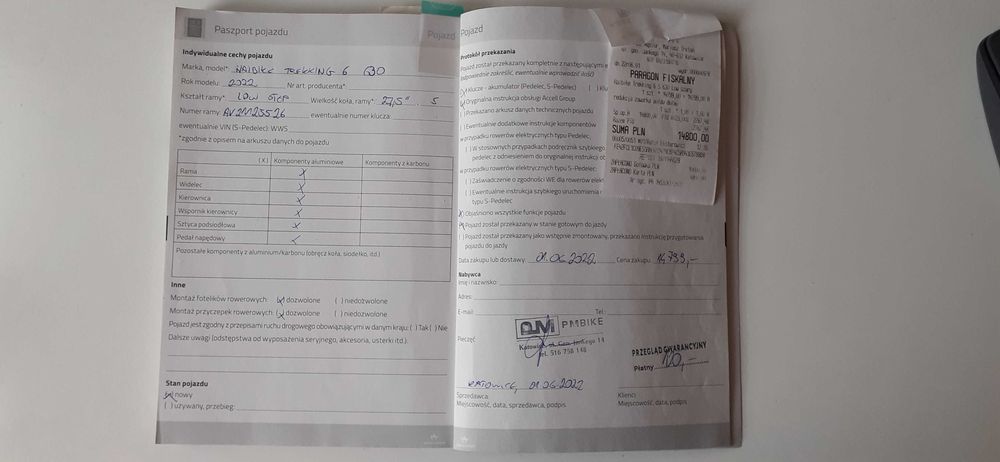 Paszport pojazdu
Indywidualne cechy pojazdu
Marka, model*: HAIBIKE TREKKING 6
Rok modelu: 2022 Nr art. producenta*:
Kształt ramy*: LOW STEP Wielkość koła, ramy*: 27,5" 5
Numer ramy: ewentualnie numer klucza:
ewentualnie VIN (S-Pedelec): WWS
*zgodnie z opisem na arkuszu danych do pojazdu
(X) Komponenty aluminiowe Komponenty z karbonu
Rama X
Widelec X
Kierownica X
Wspornik kierownicy X
Sztyca podsiodłowa X
Pedał napędowy
Pozostałe komponenty z aluminium/karbonu (obręcz koła, siodełko, itd.)
Inne
Montaż fotelików rowerowych: (X) dozwolone ( ) niedozwolone
Montaż przyczepek rowerowych: (X) dozwolone ( ) niedozwolone
Pojazd jest zgodny z przepisami ruchu drogowego obowiązującymi w danym kraju: ( ) Tak ( ) Nie
Dalsze uwagi (odstępstwa od wyposażenia seryjnego, akcesoria, usterki itd.):
Stan pojazdu
(X) nowy
( ) używany, przebieg:
Pojazd
Pojazd
Protokół przekazania
Pojazd został przekazany kompletnie z następującymi
(odpowiednie zakreślić, ewentualnie wprowadzić ilość)
Klucze - akumulator (Pedelec, S-Pedelec) ( )
Oryginalna instrukcja obsługi Accell Group
Przekazano arkusz danych technicznych pojazdu
( ) Ewentualnie dodatkowe instrukcje komponentów
w przypadku rowerów elektrycznych typu Pedelec:
( ) W stosownych przypadkach podręcznik szybkiego
pedelec z odniesieniem do oryginalnej instrukcji
w przypadku rowerów elektrycznych typu S-Pedelec:
( ) Zaświadczenie o zgodności WE dla rowerów
( ) Ewentualnie instrukcja szybkiego uruchomienia
typu S-Pedelec
(X) Objaśniono wszystkie funkcje pojazdu
(X) Pojazd został przekazany w stanie gotowym do jazdy
( ) Pojazd został przekazany jako wstępnie zmontowany, przekazano instrukcję przygotowania
pojazdu do jazdy
Data zakupu lub dostawy: 01.06.2022 Cena zakupu: 14.799,-
Nabywca
Imię i nazwisko:
Adres:
E-mail: Tel.:
PMBIKE
Pieczęć
Katowice, ul. Gen. Jankego 14
tel. 516 758 148
PRZEGLĄD GWARANCYJNY
Płatny
KATOWICE, 01.06.2022
Sprzedawca:
Miejscowość, data, sprzedawca, podpis
Klienci:
Miejscowość, data, podpis
PARAGON FISKALNY
SUMA PLN 14800,00